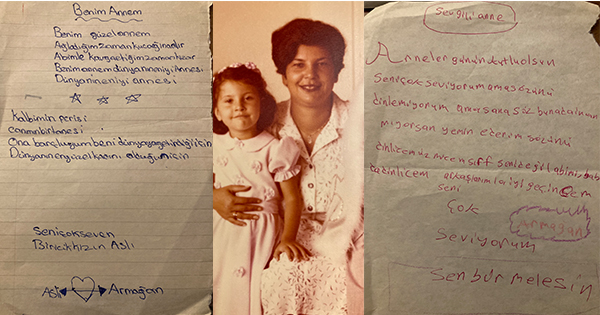 Benim Annem
Benim güzel annem
Ağladığım zaman kucağındadır
Abimle kavga ettiğim zaman kızar
Benim annem dünyanın en iyi Annesi
Dünyanın en iyi annesi
Kalbimin perisi
canımın bir tanesi
Ona borçluyum beni dünyaya getirdiği için
Dünyanın en güzel kadını olduğu için
Seni çok seven
Biricik kızın Aslı
Aslı Armağan
Sevgili anne
Anneler günün kutlu olsun
Seni çok seviyorum ama sözünü
dinlemiyorum ama sana söz buna da inan
mıyorsan yemin ederim sözünü
dinlicem
arkadaşlarımla iyi geçinecem
seni
çok
Armağan
Seviyorum
Sen bir melesin